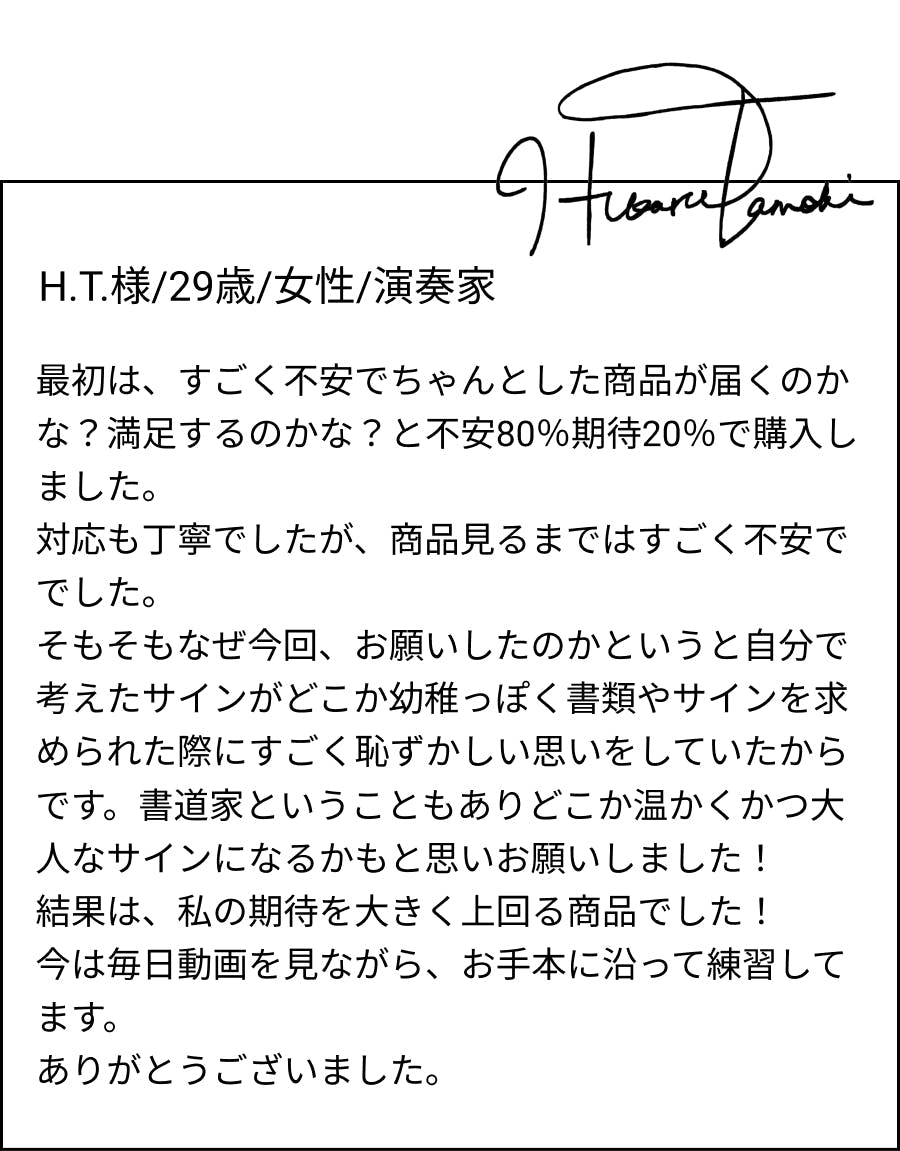 H.T.様/29歳/女性/演奏家
最初は、すごく不安でちゃんとした商品が届くのか
な？満足するのかな？と不安80％期待20％で購入し
ました。
対応も丁寧でしたが、商品見るまではすごく不安で
でした。
そもそもなぜ今回、お願いしたのかというと自分で
考えたサインがどこか幼稚っぽく書類やサインを求
められた際にすごく恥ずかしい思いをしていたから
です。書道家ということもありどこか温かくかつ大
人なサインになるかもと思いお願いしました！
結果は、私の期待を大きく上回る商品でした！
今は毎日動画を見ながら、お手本に沿って練習して
ます。
ありがとうございました。